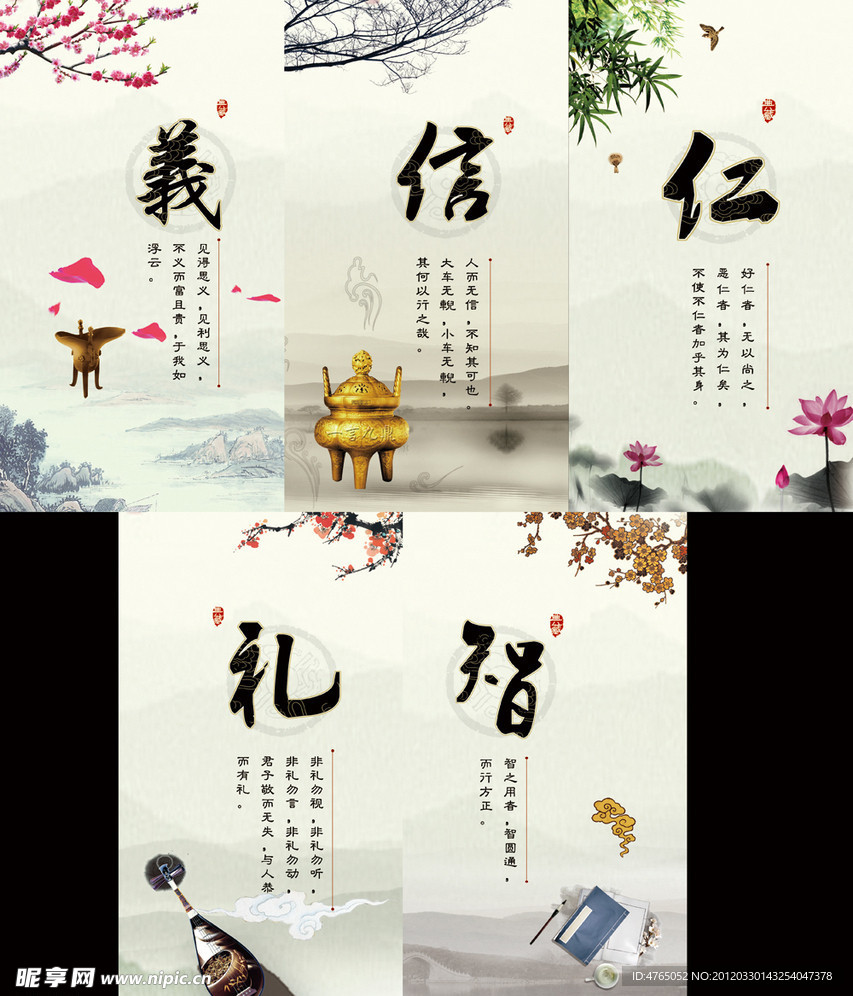 義
见得思义,见利思义,
不义而富且贵,于我如
浮云。
信
人而无信,不知其可也。
大车无輗,小车无軏,
其何以行之哉。
一言九鼎
仁
好仁者,无以尚之,
恶仁者,其为仁矣,
不使不仁者加乎其身。
礼
非礼勿视,非礼勿听,
非礼勿言,非礼勿动,
君子敬而无失,与人恭
而有礼。
智
智之用者,智圆通,
而行方正。
昵享网 www.nipic.cn
ID:4765052 NO:20120330143254047378